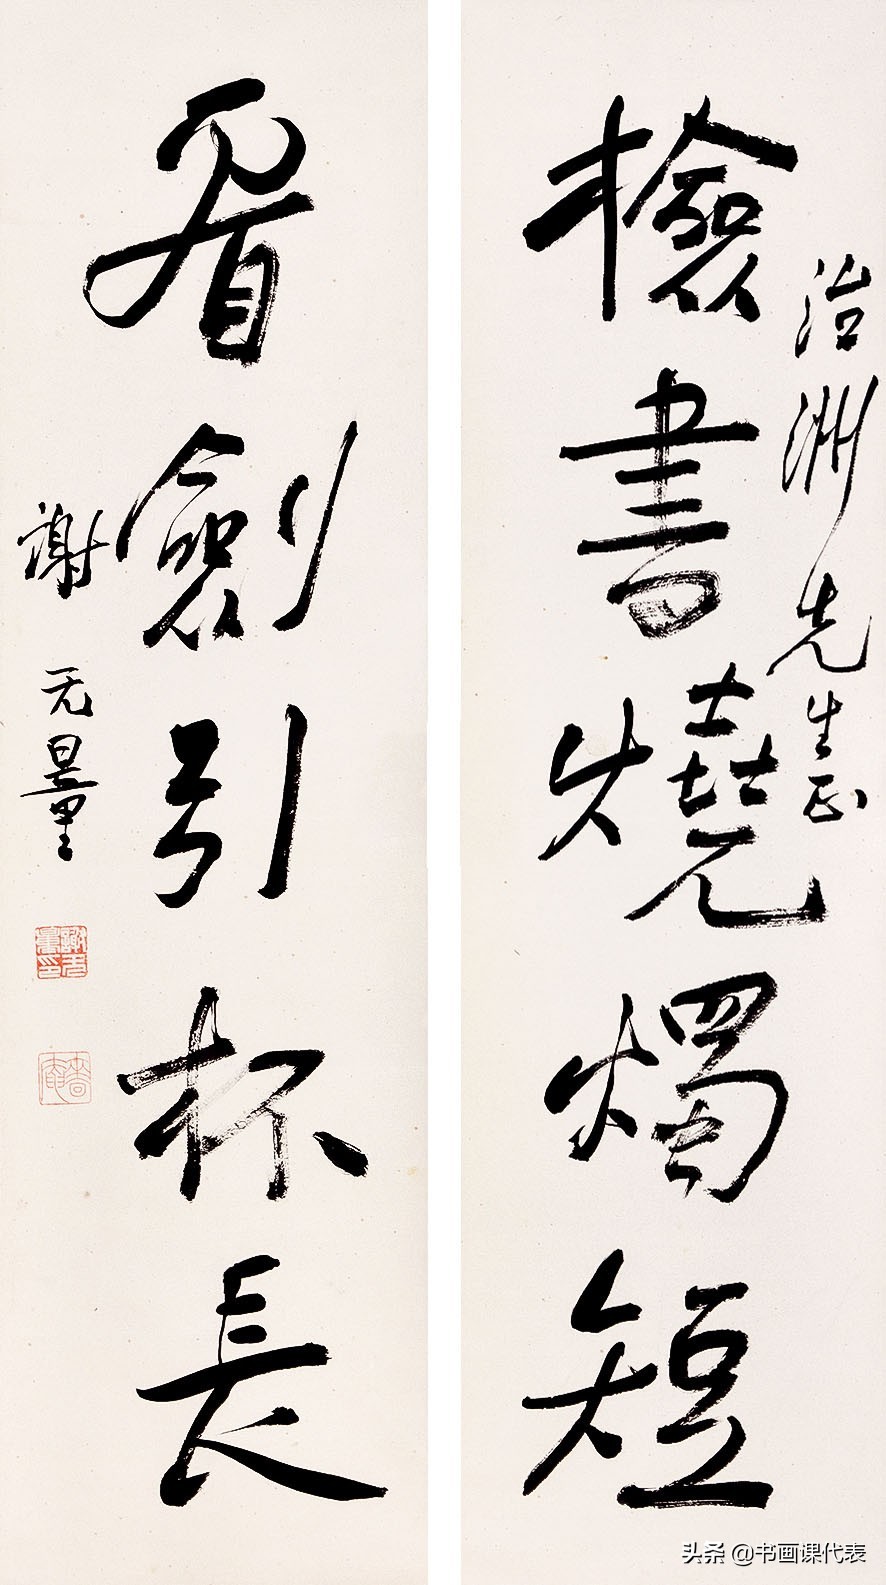 治洲先生正
檢書燒燭短
看劍引杯長
謝无量
謝无量印
嗇庵
头条 @书画课代表